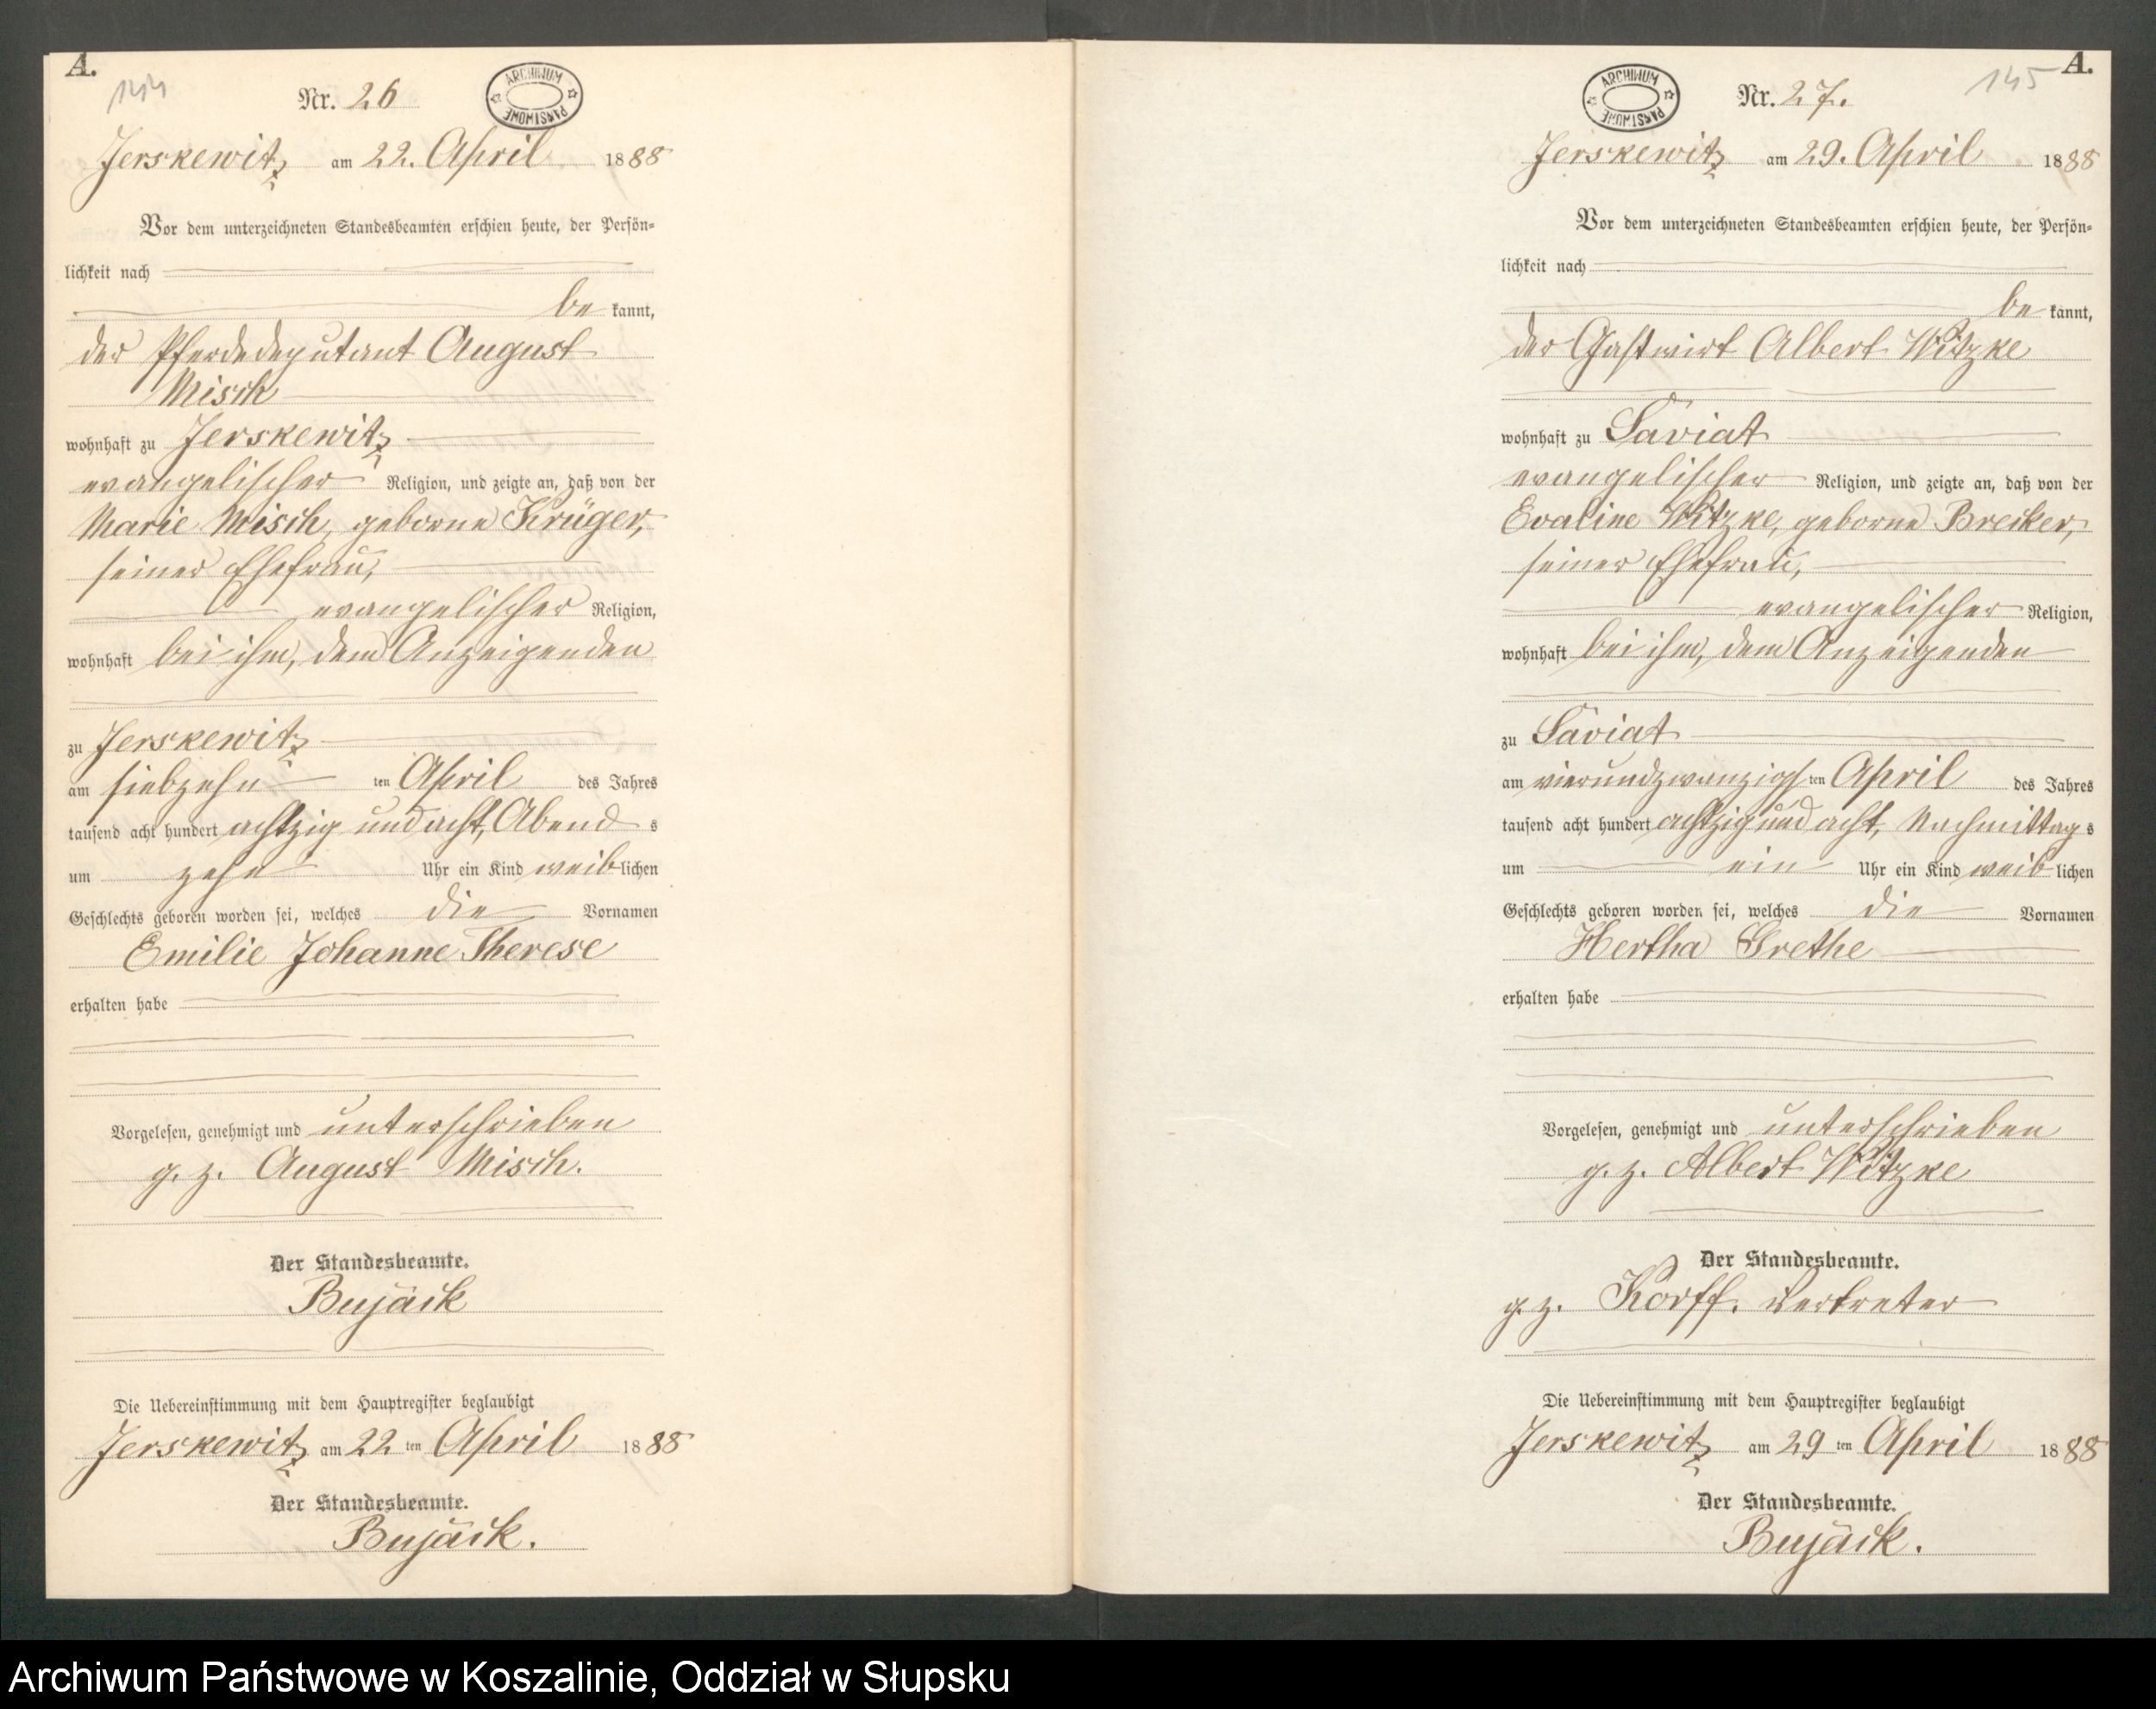 A.
144
Nr. 26
ARCHIWUM PAŃSTWOWE
Jerskewitz am 22. April 1888
Vor dem unterzeichneten Standesbeamten erschien heute, der Persön-
lichkeit nach
be kannt,
der Pferdedeputant August
Misch
wohnhaft zu Jerskewitz
evangelischer Religion, und zeigte an, daß von der
Marie Misch, geborne Krüger,
seiner Ehefrau,
evangelischer Religion,
wohnhaft bei ihm, dem Anzeigenden
zu Jerskewitz
am siebzehn ten April des Jahres
tausend acht hundert achtzig und acht, Abend s
um zehn Uhr ein Kind weiblichen
Geschlechts geboren worden sei, welches die Vornamen
Emilie Johanne Therese
erhalten habe
Vorgelesen, genehmigt und unterschrieben
g. z. August Misch.
Der Standesbeamte.
Bujäck
Die Uebereinstimmung mit dem Hauptregister beglaubigt
Jerskewitz am 22 ten April 1888
Der Standesbeamte.
Bujäck.
A.
145
Nr. 27.
ARCHIWUM PAŃSTWOWE
Jerskewitz am 29. April 1888
Vor dem unterzeichneten Standesbeamten erschien heute, der Persön-
lichkeit nach
be kannt,
der Gastwirt Albert Witzke
wohnhaft zu Saviat
evangelischer Religion, und zeigte an, daß von der
Evaline Witzke, geborne Brecker,
seiner Ehefrau,
evangelischer Religion,
wohnhaft bei ihm, dem Anzeigenden
zu Saviat
am vierundzwanzigsten April des Jahres
tausend acht hundert achtzig und acht, Nachmittag s
um ein Uhr ein Kind weiblichen
Geschlechts geboren worden sei, welches die Vornamen
Hertha Grethe
erhalten habe
Vorgelesen, genehmigt und unterschrieben
g. z. Albert Witzke
Der Standesbeamte.
g. z. Korff. Vertreter
Die Uebereinstimmung mit dem Hauptregister beglaubigt
Jerskewitz am 29 ten April 1888
Der Standesbeamte.
Bujäck.
Archiwum Państwowe w Koszalinie, Oddział w Słupsku